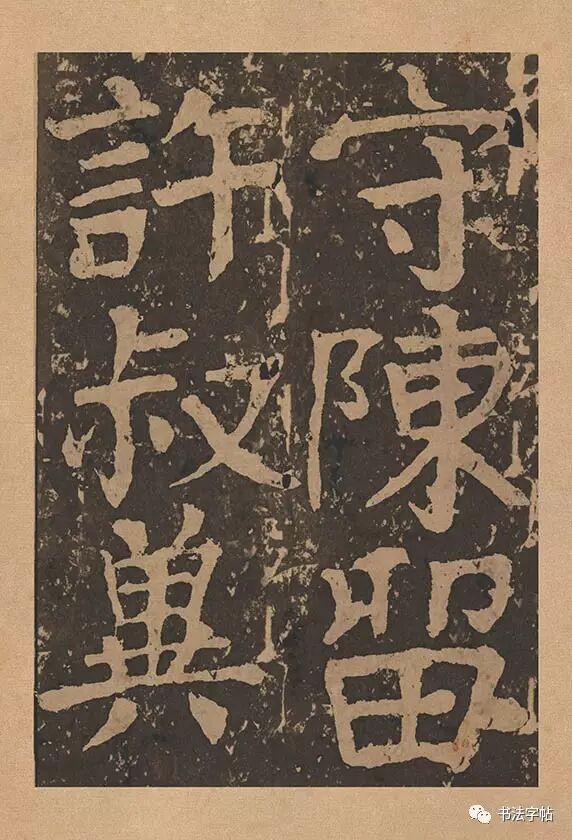 守陳留
許叔典
书法字帖